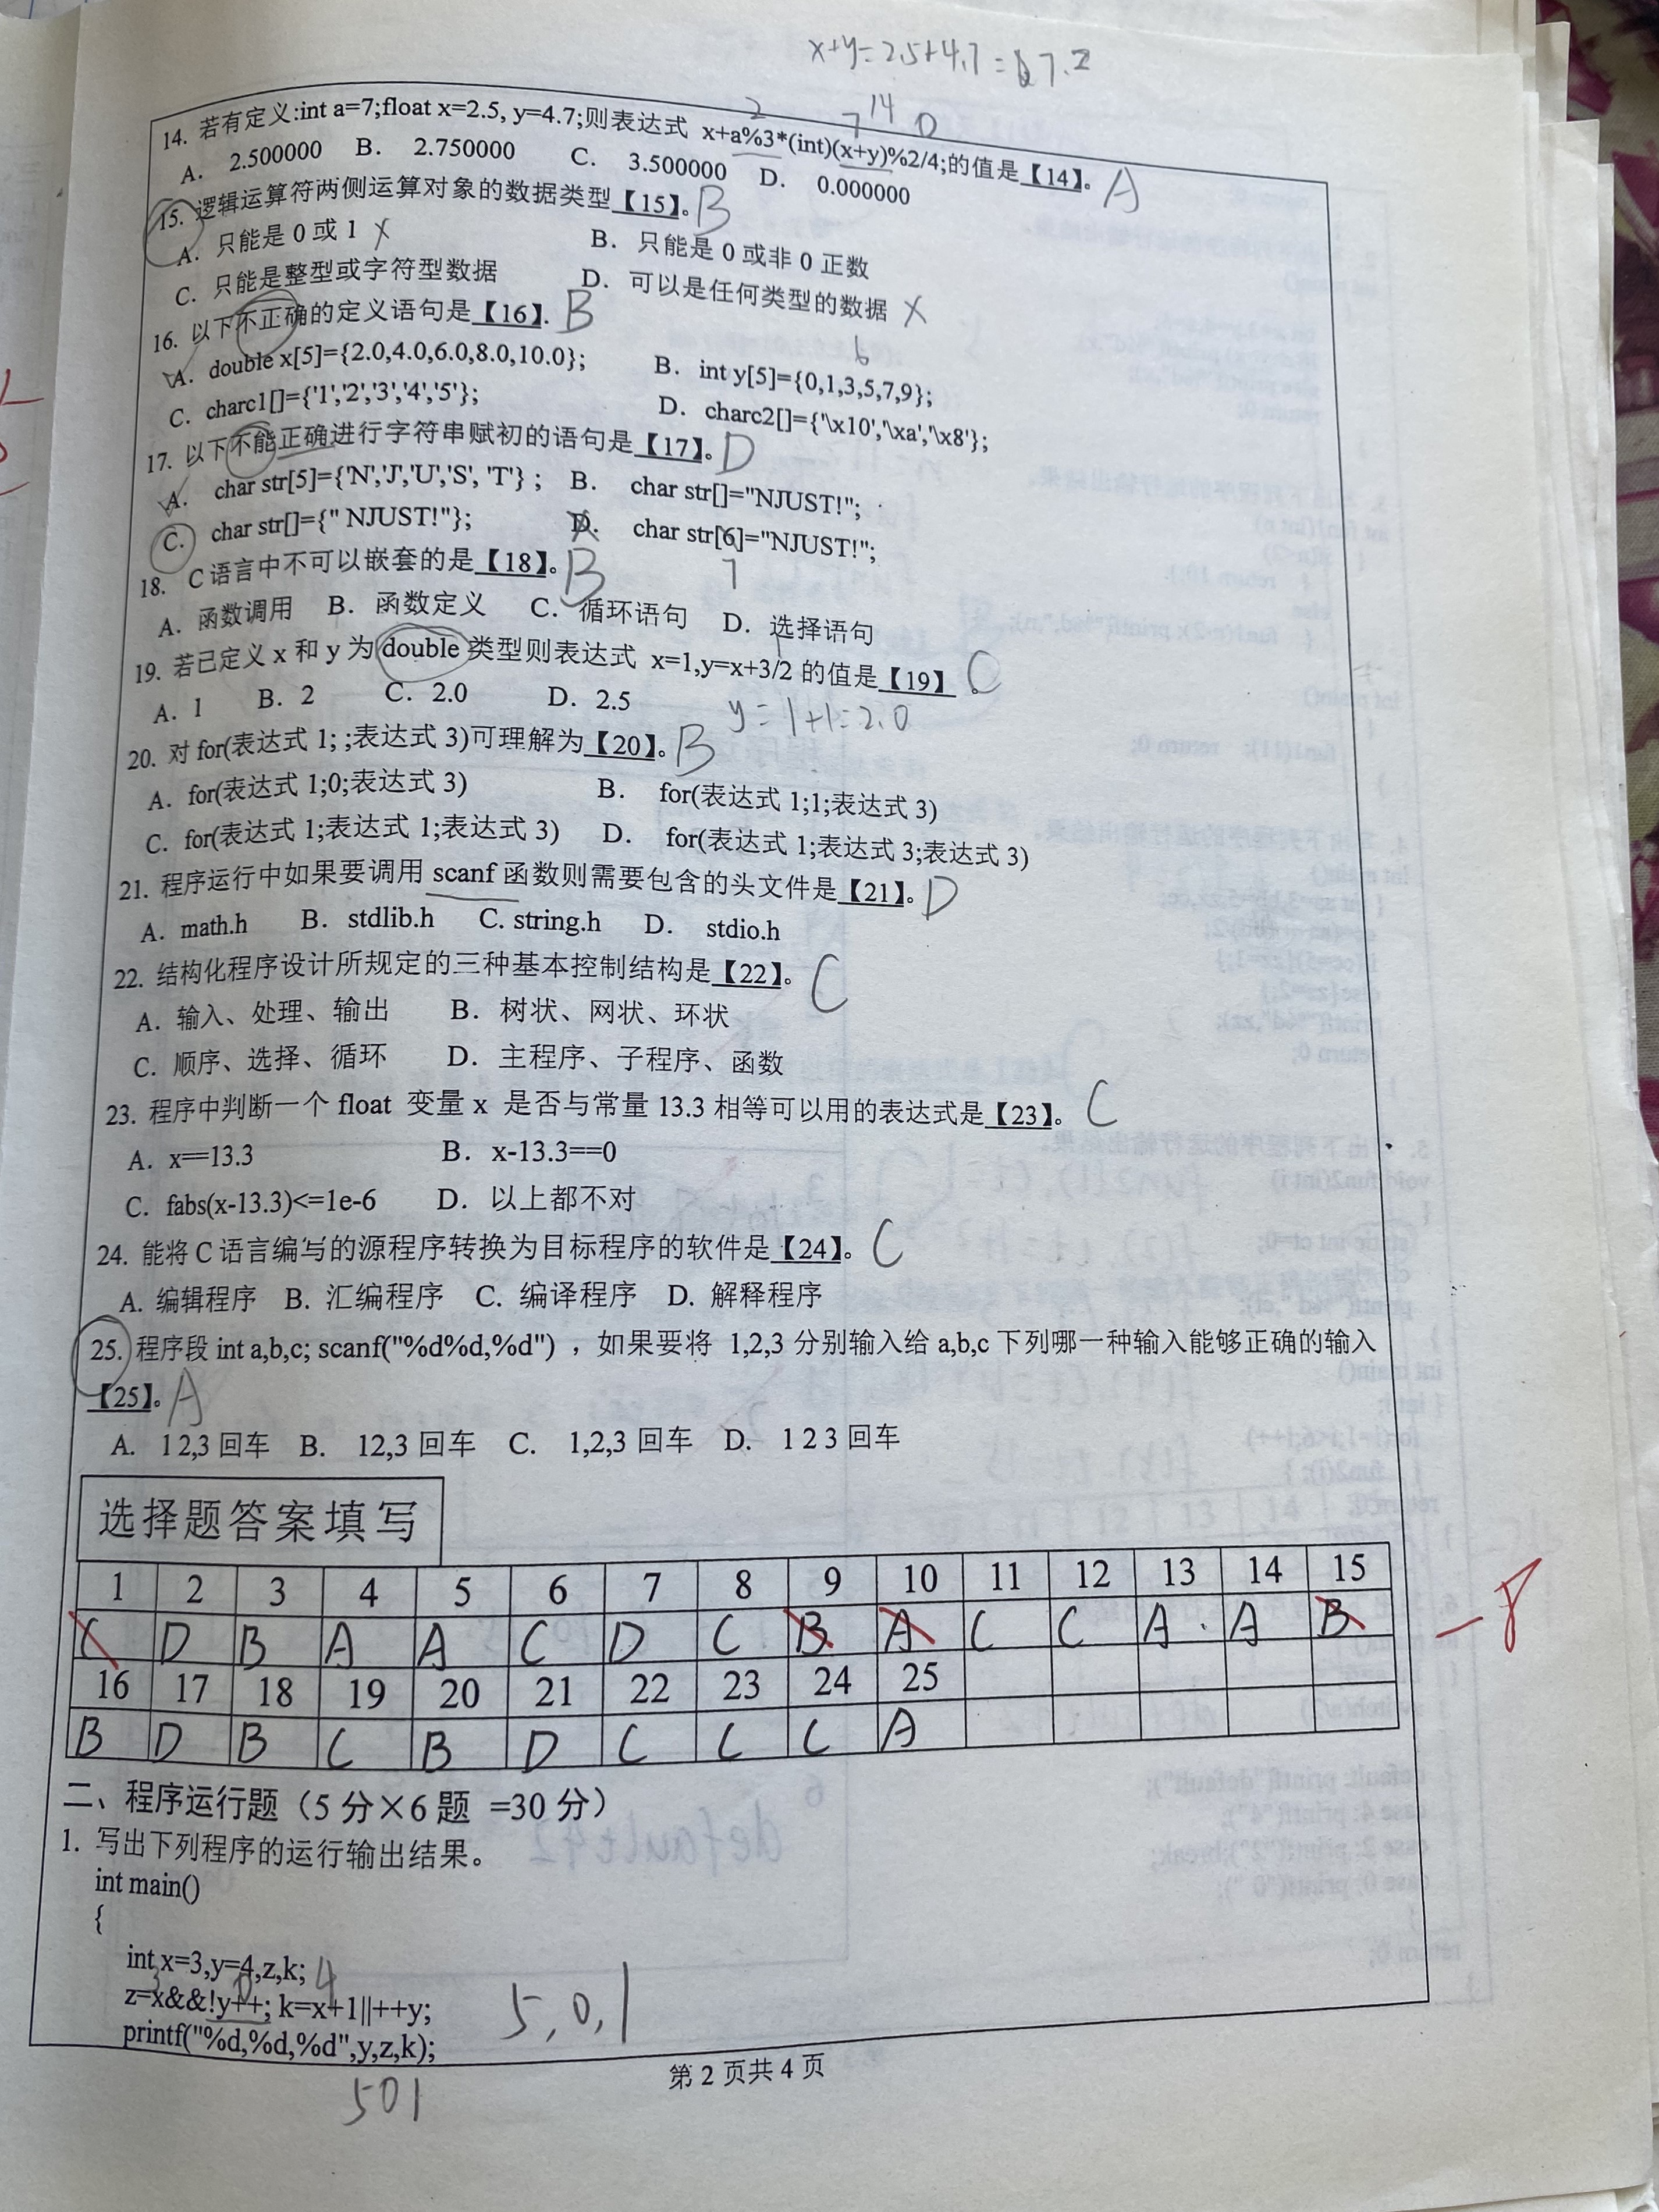 x+y=2.5+4.7=7.2
2 7 14 0
14. 若有定义:int a=7;float x=2.5, y=4.7;则表达式 x+a%3*(int)(x+y)%2/4;的值是【14】。A
A. 2.500000 B. 2.750000 C. 3.500000 D. 0.000000
15. 逻辑运算符两侧运算对象的数据类型【15】。B
A. 只能是 0 或 1 × B. 只能是 0 或非 0 正数
C. 只能是整型或字符型数据 D. 可以是任何类型的数据 ×
16. 以下不正确的定义语句是【16】. B
6
A. double x[5]={2.0,4.0,6.0,8.0,10.0}; B. int y[5]={0,1,3,5,7,9};
C. charc1[]={'1','2','3','4','5'}; D. charc2[]={'\x10','\xa','\x8'};
17. 以下不能正确进行字符串赋初的语句是【17】。D
A. char str[5]={'N','J','U','S', 'T'} ; B. char str[]="NJUST!";
C. char str[]={" NJUST!"}; D. char str[6]="NJUST!";
7
18. C 语言中不可以嵌套的是【18】。B
A. 函数调用 B. 函数定义 C. 循环语句 D. 选择语句
1
19. 若已定义 x 和 y 为 double 类型则表达式 x=1,y=x+3/2 的值是【19】 。C
A. 1 B. 2 C. 2.0 D. 2.5
y=1+1=2.0
20. 对 for(表达式 1; ;表达式 3)可理解为【20】。B
A. for(表达式 1;0;表达式 3) B. for(表达式 1;1;表达式 3)
C. for(表达式 1;表达式 1;表达式 3) D. for(表达式 1;表达式 3;表达式 3)
21. 程序运行中如果要调用 scanf 函数则需要包含的头文件是【21】。D
A. math.h B. stdlib.h C. string.h D. stdio.h
22. 结构化程序设计所规定的三种基本控制结构是【22】。C
A. 输入、处理、输出 B. 树状、网状、环状
C. 顺序、选择、循环 D. 主程序、子程序、函数
23. 程序中判断一个 float 变量 x 是否与常量 13.3 相等可以用的表达式是【23】。C
A. x==13.3 B. x-13.3==0
C. fabs(x-13.3)<=1e-6 D. 以上都不对
24. 能将 C 语言编写的源程序转换为目标程序的软件是【24】。C
A. 编辑程序 B. 汇编程序 C. 编译程序 D. 解释程序
25. 程序段 int a,b,c; scanf("%d%d,%d") ，如果要将 1,2,3 分别输入给 a,b,c 下列哪一种输入能够正确的输入
【25】。A
A. 1 2,3 回车 B. 12,3 回车 C. 1,2,3 回车 D. 1 2 3 回车
选择题答案填写
1 2 3 4 5 6 7 8 9 10 11 12 13 14 15
C D B A A C D C B A C C A A B
-8
16 17 18 19 20 21 22 23 24 25
B D B C B D C C C A
二、程序运行题（5 分×6 题 =30 分）
1. 写出下列程序的运行输出结果。
int main()
{
int x=3,y=4,z,k;
3 0 4
z=x&&!y++; k=x+1||++y;
printf("%d,%d,%d",y,z,k);
5,0,1
501
第 2 页共 4 页